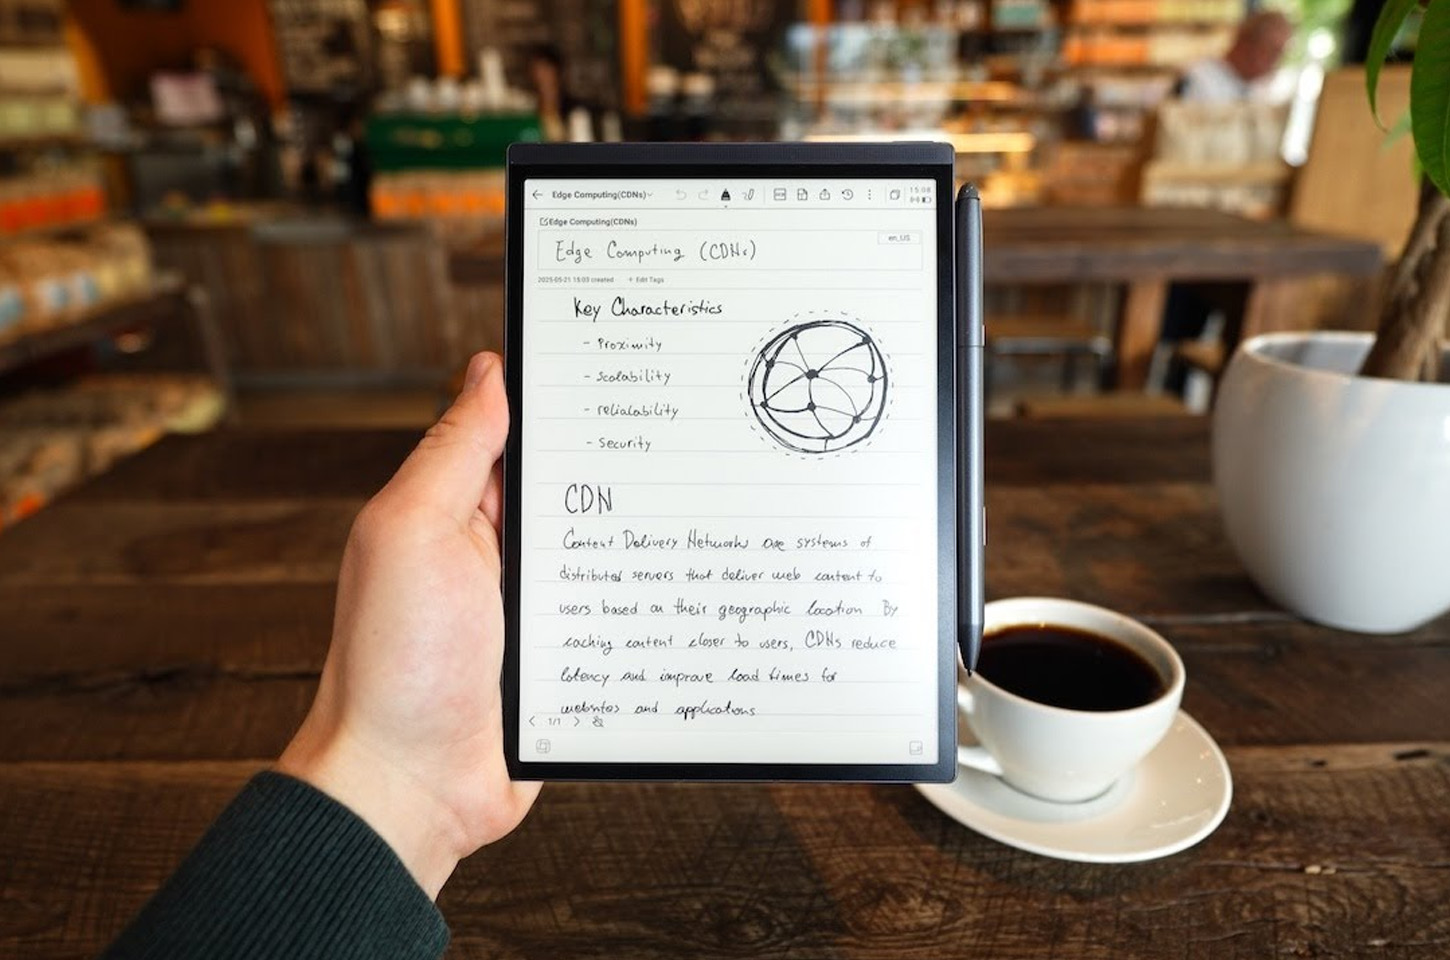 Edge Computing(CDNs)
15:08
Edge Computing(CDNs)
Edge Computing (CDNs)
en_US
2025-05-21 15:03 created + Edit Tags
Key Characteristics
- Proximity
- Scalability
- relialability
- Security
CDN
Content Delivery Networks are systems of
distributed servers that deliver web content to
users based on their geographic location By
caching content closer to users, CDNs reduce
latency and improve load times for
websites and applications
1/1